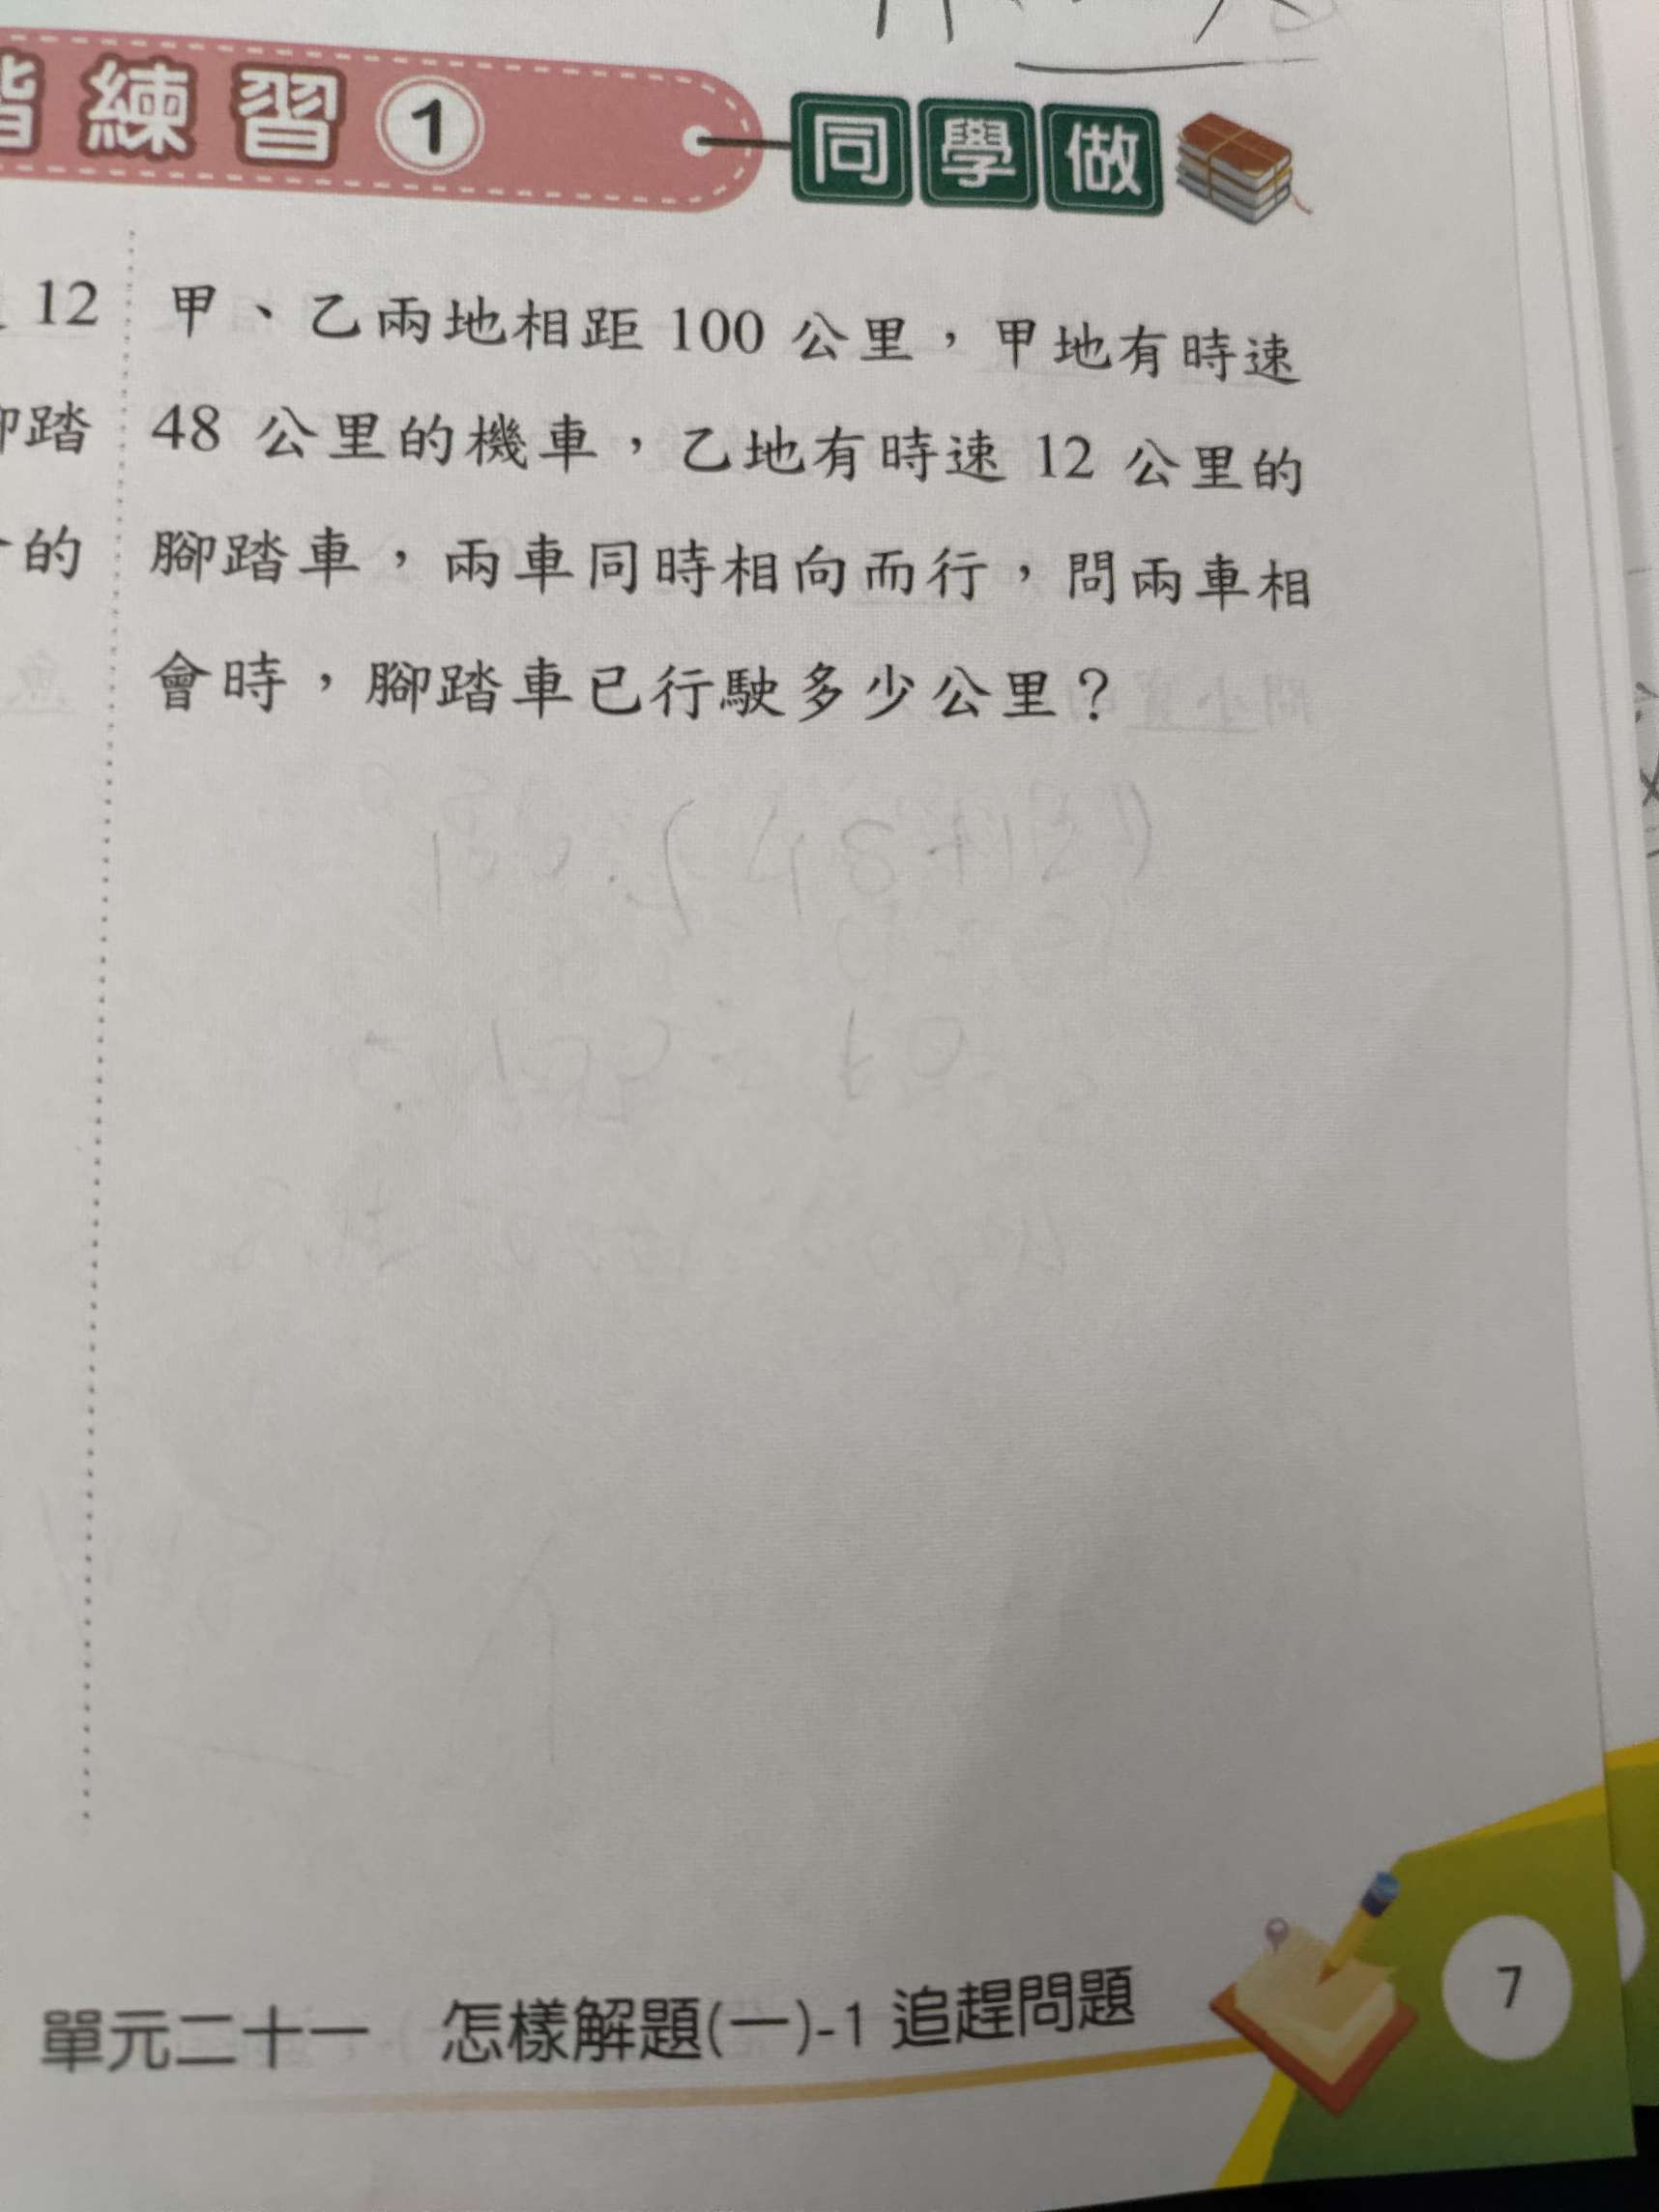 練習 1 同學做
12
甲、乙兩地相距 100 公里，甲地有時速
踏
48 公里的機車，乙地有時速 12 公里的
的
腳踏車，兩車同時相向而行，問兩車相
會時，腳踏車已行駛多少公里？
單元二十一 怎樣解題(一)-1 追趕問題
7